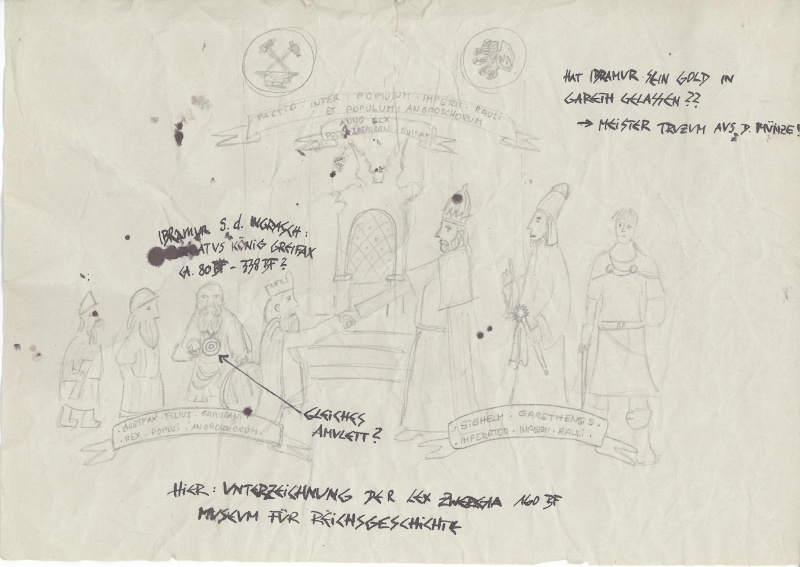 HAT IBRAMUR SEIN GOLD IN
GARETH GELASSEN??
→ MEISTER TRUZUM AUS D. MÜNZE!
PACTIO · INTER · POPULUM · IMPERII · RAULI
ET POPULUM · ANGROSCHORUM
ANNO LEX
IBRAMUR S. d. INGRASCH:
KÖNIG GREIFAX
CA. 80 BF - 338 BF?
GLEICHES
AMULETT?
FILIUS
· REX · POPULI · ANGROSCHORUM ·
SIGHELM · GARETHENSIS
IMPERATOR · IMPERII · RAULI ·
HIER: UNTERZEICHNUNG DER LEX ZWERGIA 160 BF
MUSEUM FÜR REICHSGESCHICHTE